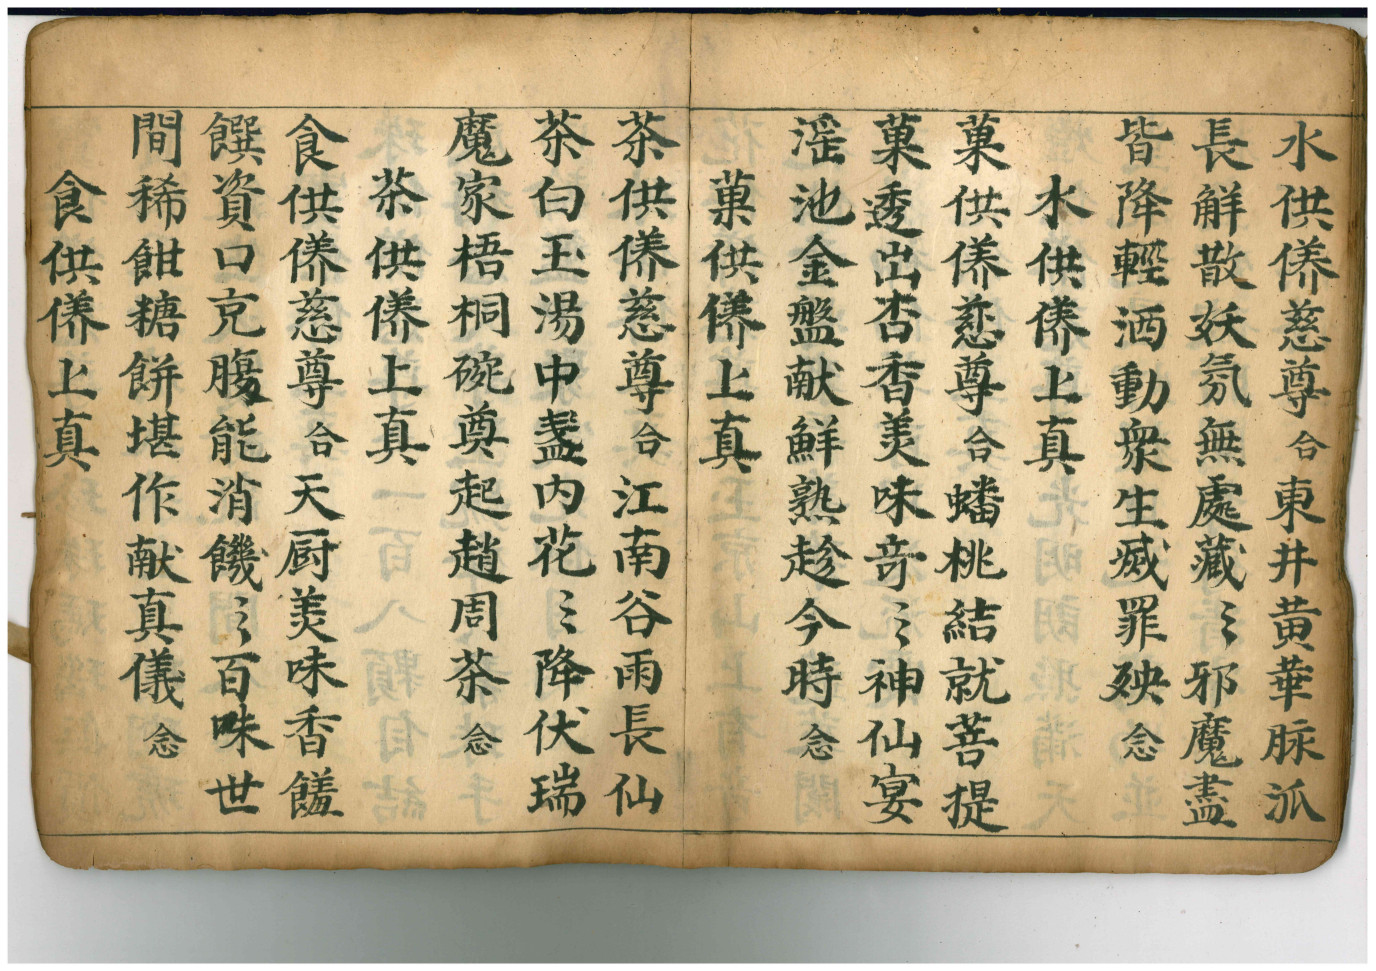 水供養慈尊合東井黄華脉派
長解散妖氛無處藏〻邪魔盡
皆降輕洒動衆生滅罪殃念
水供養上真
菓供養慈尊合蟠桃結就菩提
菓透出杏香美味竒〻神仙宴
淫池金盤献鮮熟趁今時念
菓供養上真
茶供養慈尊合江南谷雨長仙
茶白玉湯中盞内花〻降伏瑞
魔家梧桐碗奠起趙周茶念
茶供養上真
食供養慈尊合天厨美味香饈
饌資口克腸能消饑〻百味世
間稀餅糖餅堪作献真儀念
食供養上真